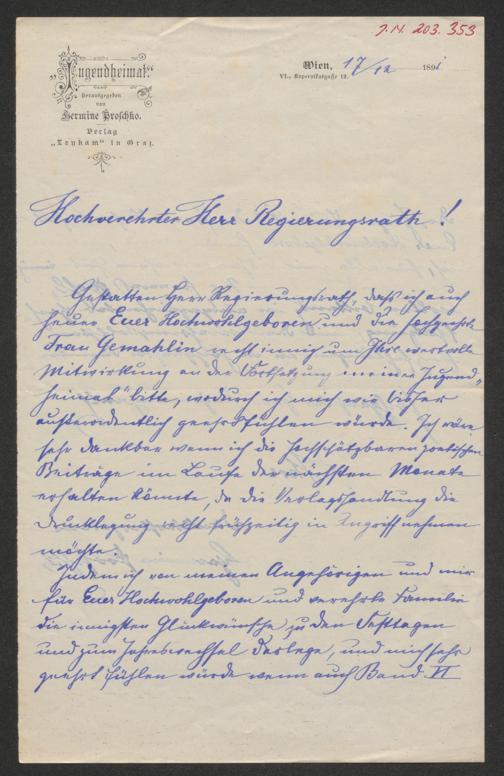 J.N. 203.353
„Jugendheimat“
Herausgegeben
von
Hermine Proschko.
Verlag
„Leykam“ in Graz.
Wien, 17/12 1891
VI., Kopernikusgasse 12.
Hochverehrter Herr Regierungsrath!
Gestatten Herr Regierungsrath, daß ich auch
heuer Euer Hochwohlgeboren und die hochgeehrte
Frau Gemahlin recht innig um Ihre wertvolle
Mitwirkung an der Fortsetzung meiner „Jugend-
heimat“ bitte, wodurch ich mich wie bisher
außerordentlich geehrt fühlen würde. Ich wäre
sehr dankbar wenn ich die hochschätzbaren poetischen
Beiträge im Laufe der nächsten Monate
erhalten könnte, da die Verlagshandlung die
Drucklegung recht frühzeitig in Angriff nehmen
möchte.
Indem ich von meinen Angehörigen und mir
für Euer Hochwohlgeboren und verehrte Familie
die innigsten Glückwünsche zu den Festtagen
und zum Jahreswechsel darlege, und mich sehr
geehrt fühlen würde wenn auch Band VI